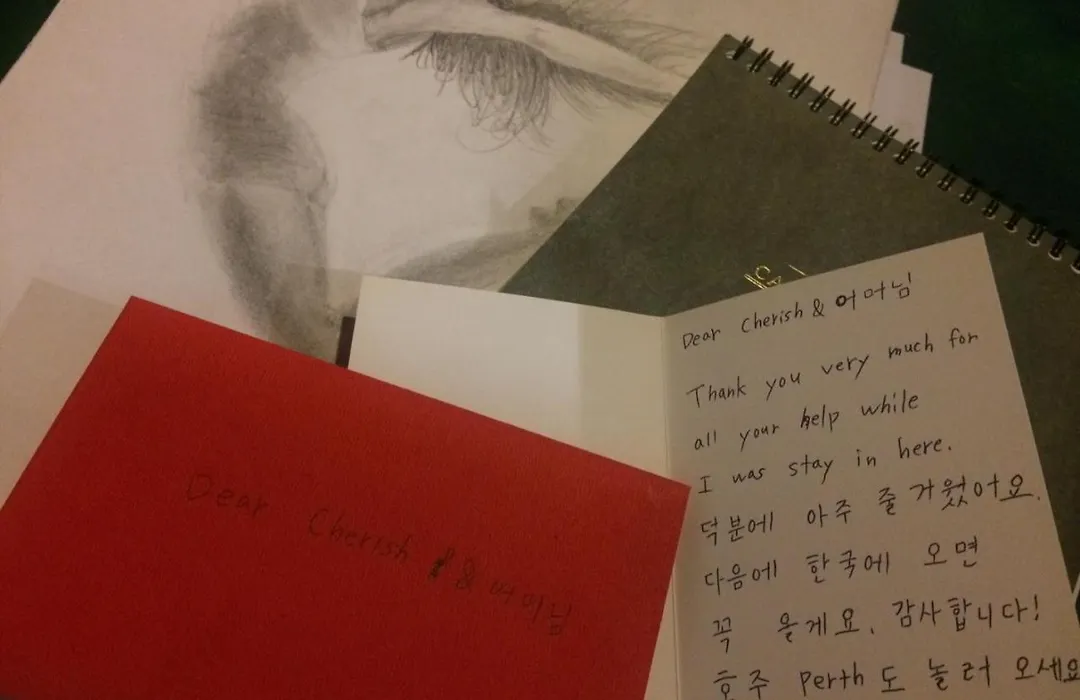 Dear Cherish & 어머님
Thank you very much for
all your help while
I was stay in here.
덕분에 아주 줄거웠어요.
다음에 한국에 오면
꼭 올게요. 감사합니다!
호주 Perth도 놀러 오세요
Dear Cherish & 어머님